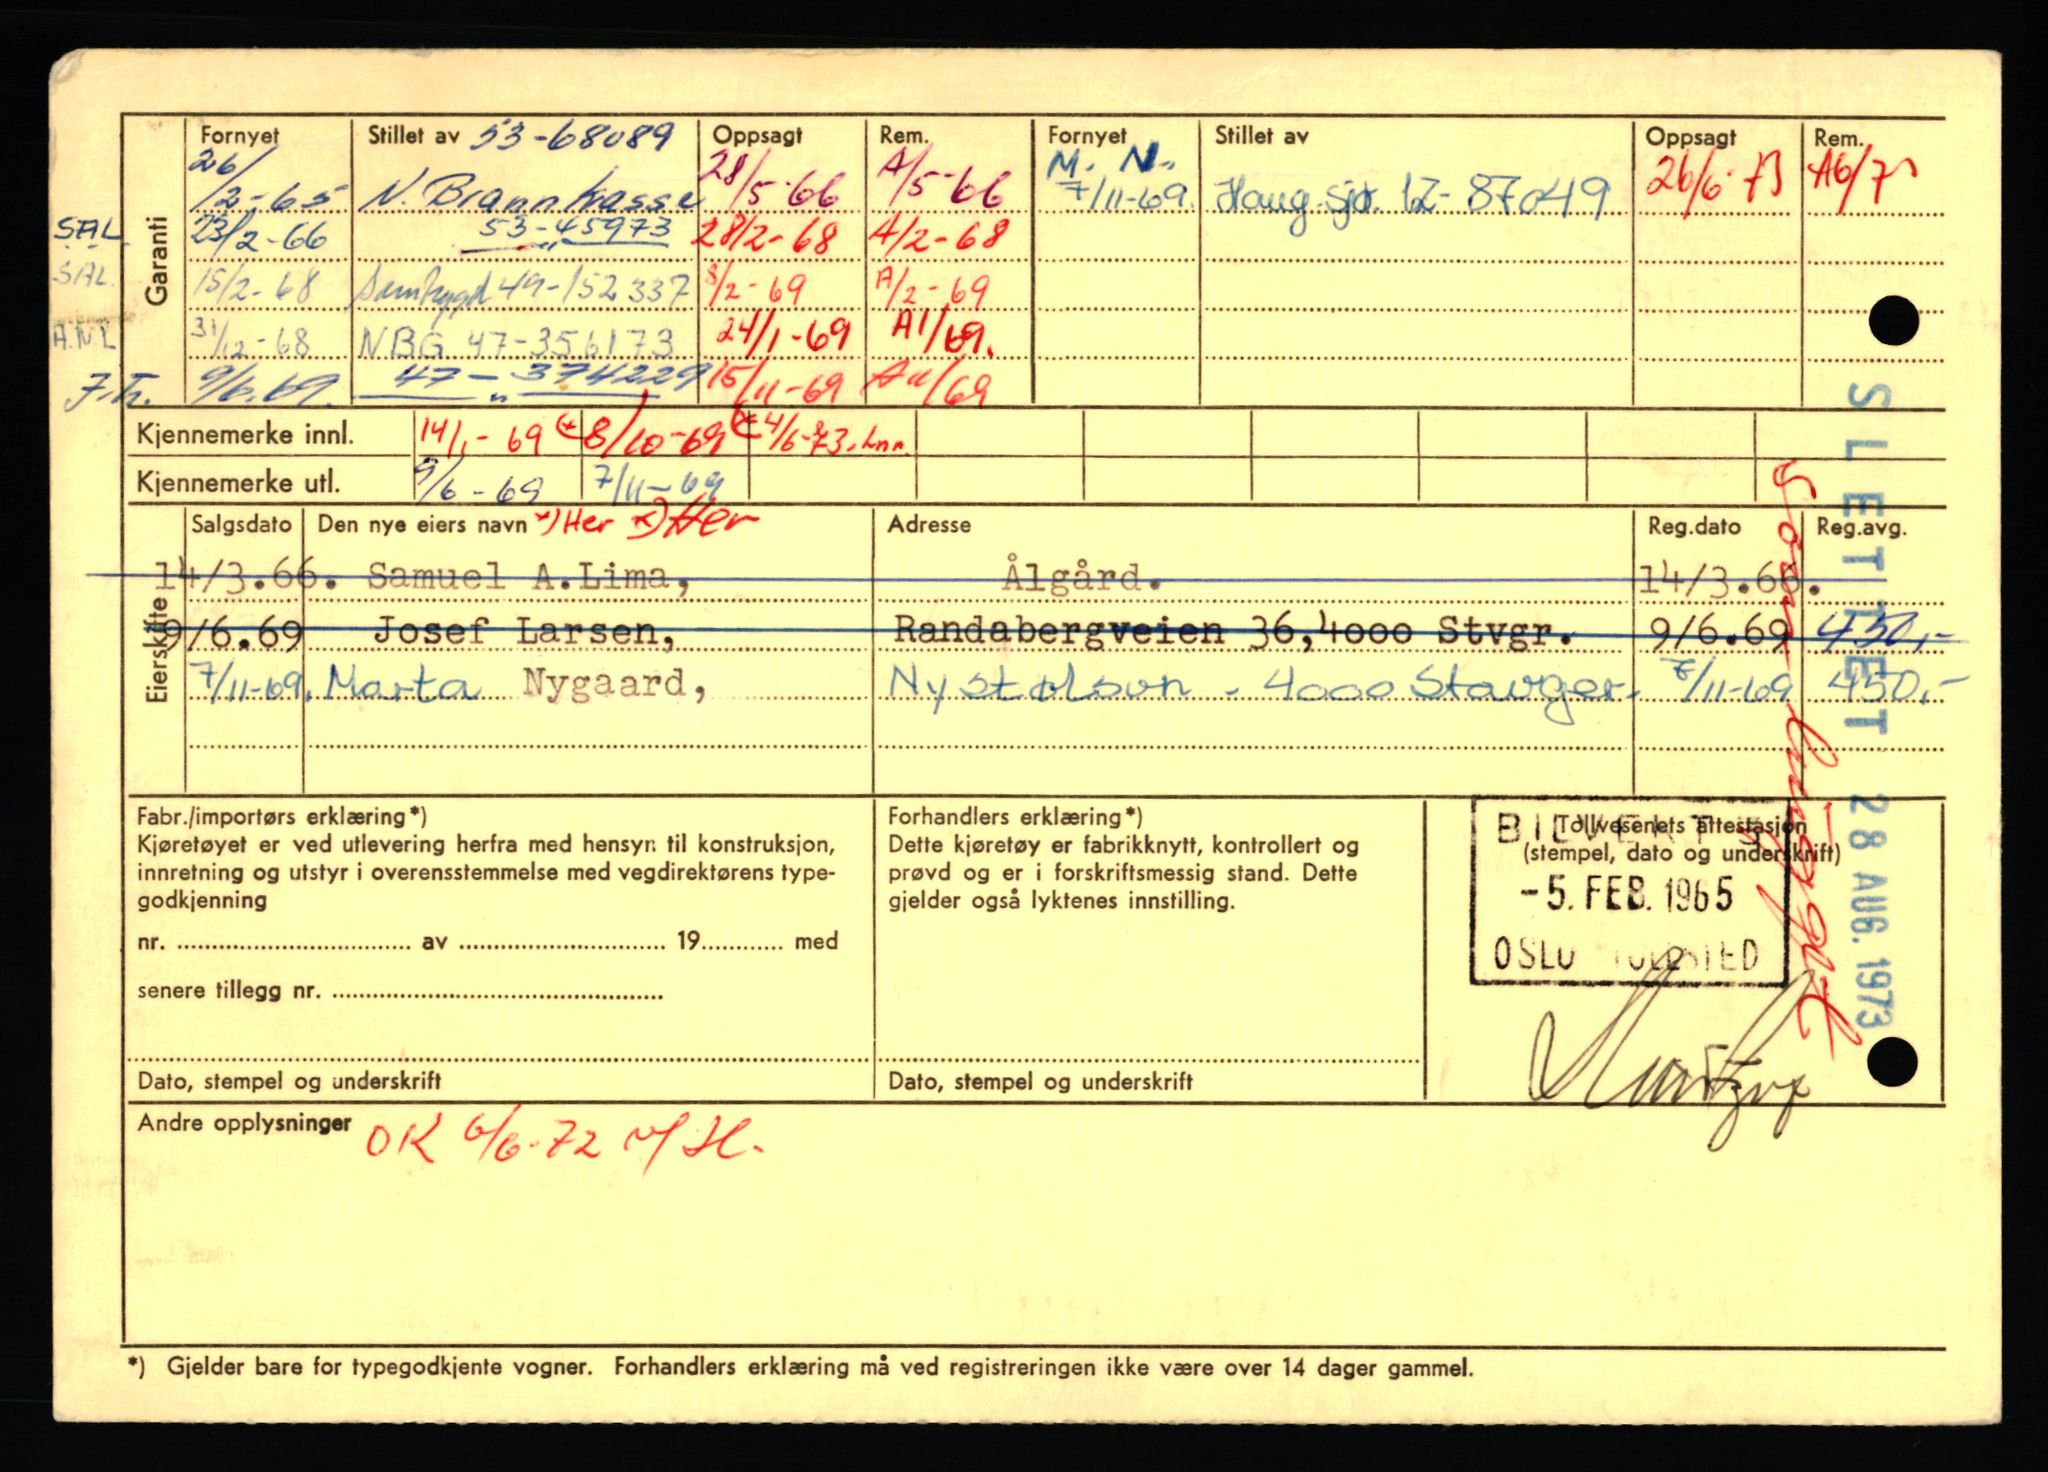 Garanti
Fornyet Stillet av 53-68089 Oppsagt Rem. Fornyet Stillet av Oppsagt Rem.
26/2-65 N. Brannkasse 28/5-66 A/5-66 M. N. 7/11-69. Haug. sjø. 12-87049 26/6-73 A6/73
SAL 23/2-66 53-45973 28/2-68 A/2-68
SAL. 15/2-68 Samtrygd 49-152337 8/2-69 A/2-69
A.N.L 31/12-68 NBG 47-356173 24/1-69 A1/69.
J.Th. 9/6.69. 47-374229 15/11-69 A11/69
Kjennemerke innl. 14/1-69 8/10-69 4/6-73.
Kjennemerke utl. 9/6-69 7/11-69
Eierskifte
Salgsdato Den nye eiers navn *) Her *) Her Adresse Reg.dato Reg.avg.
14/3.66. Samuel A.Lima, Ålgård. 14/3.66.
9/6.69 Josef Larsen, Randabergveien 36,4000 Stvgr. 9/6.69 430,-
7/11-69. Marta Nygaard, Nystølsvn. 4000 Stavger. 7/11-69 450,-
SLETTET 28 AUG. 1973
Fabr./importørs erklæring*)
Kjøretøyet er ved utlevering herfra med hensyn til konstruksjon,
innretning og utstyr i overensstemmelse med vegdirektørens type-
godkjenning
nr. av 19 med
senere tillegg nr.
Dato, stempel og underskrift
Forhandlers erklæring*)
Dette kjøretøy er fabrikknytt, kontrollert og
prøvd og er i forskriftsmessig stand. Dette
gjelder også lyktenes innstilling.
Dato, stempel og underskrift
Tollvesenets attestasjon
(stempel, dato og underskrift)
-5. FEB. 1965
OSLO TOLLSTED
Andre opplysninger OK 6/6-72
*) Gjelder bare for typegodkjente vogner. Forhandlers erklæring må ved registreringen ikke være over 14 dager gammel.